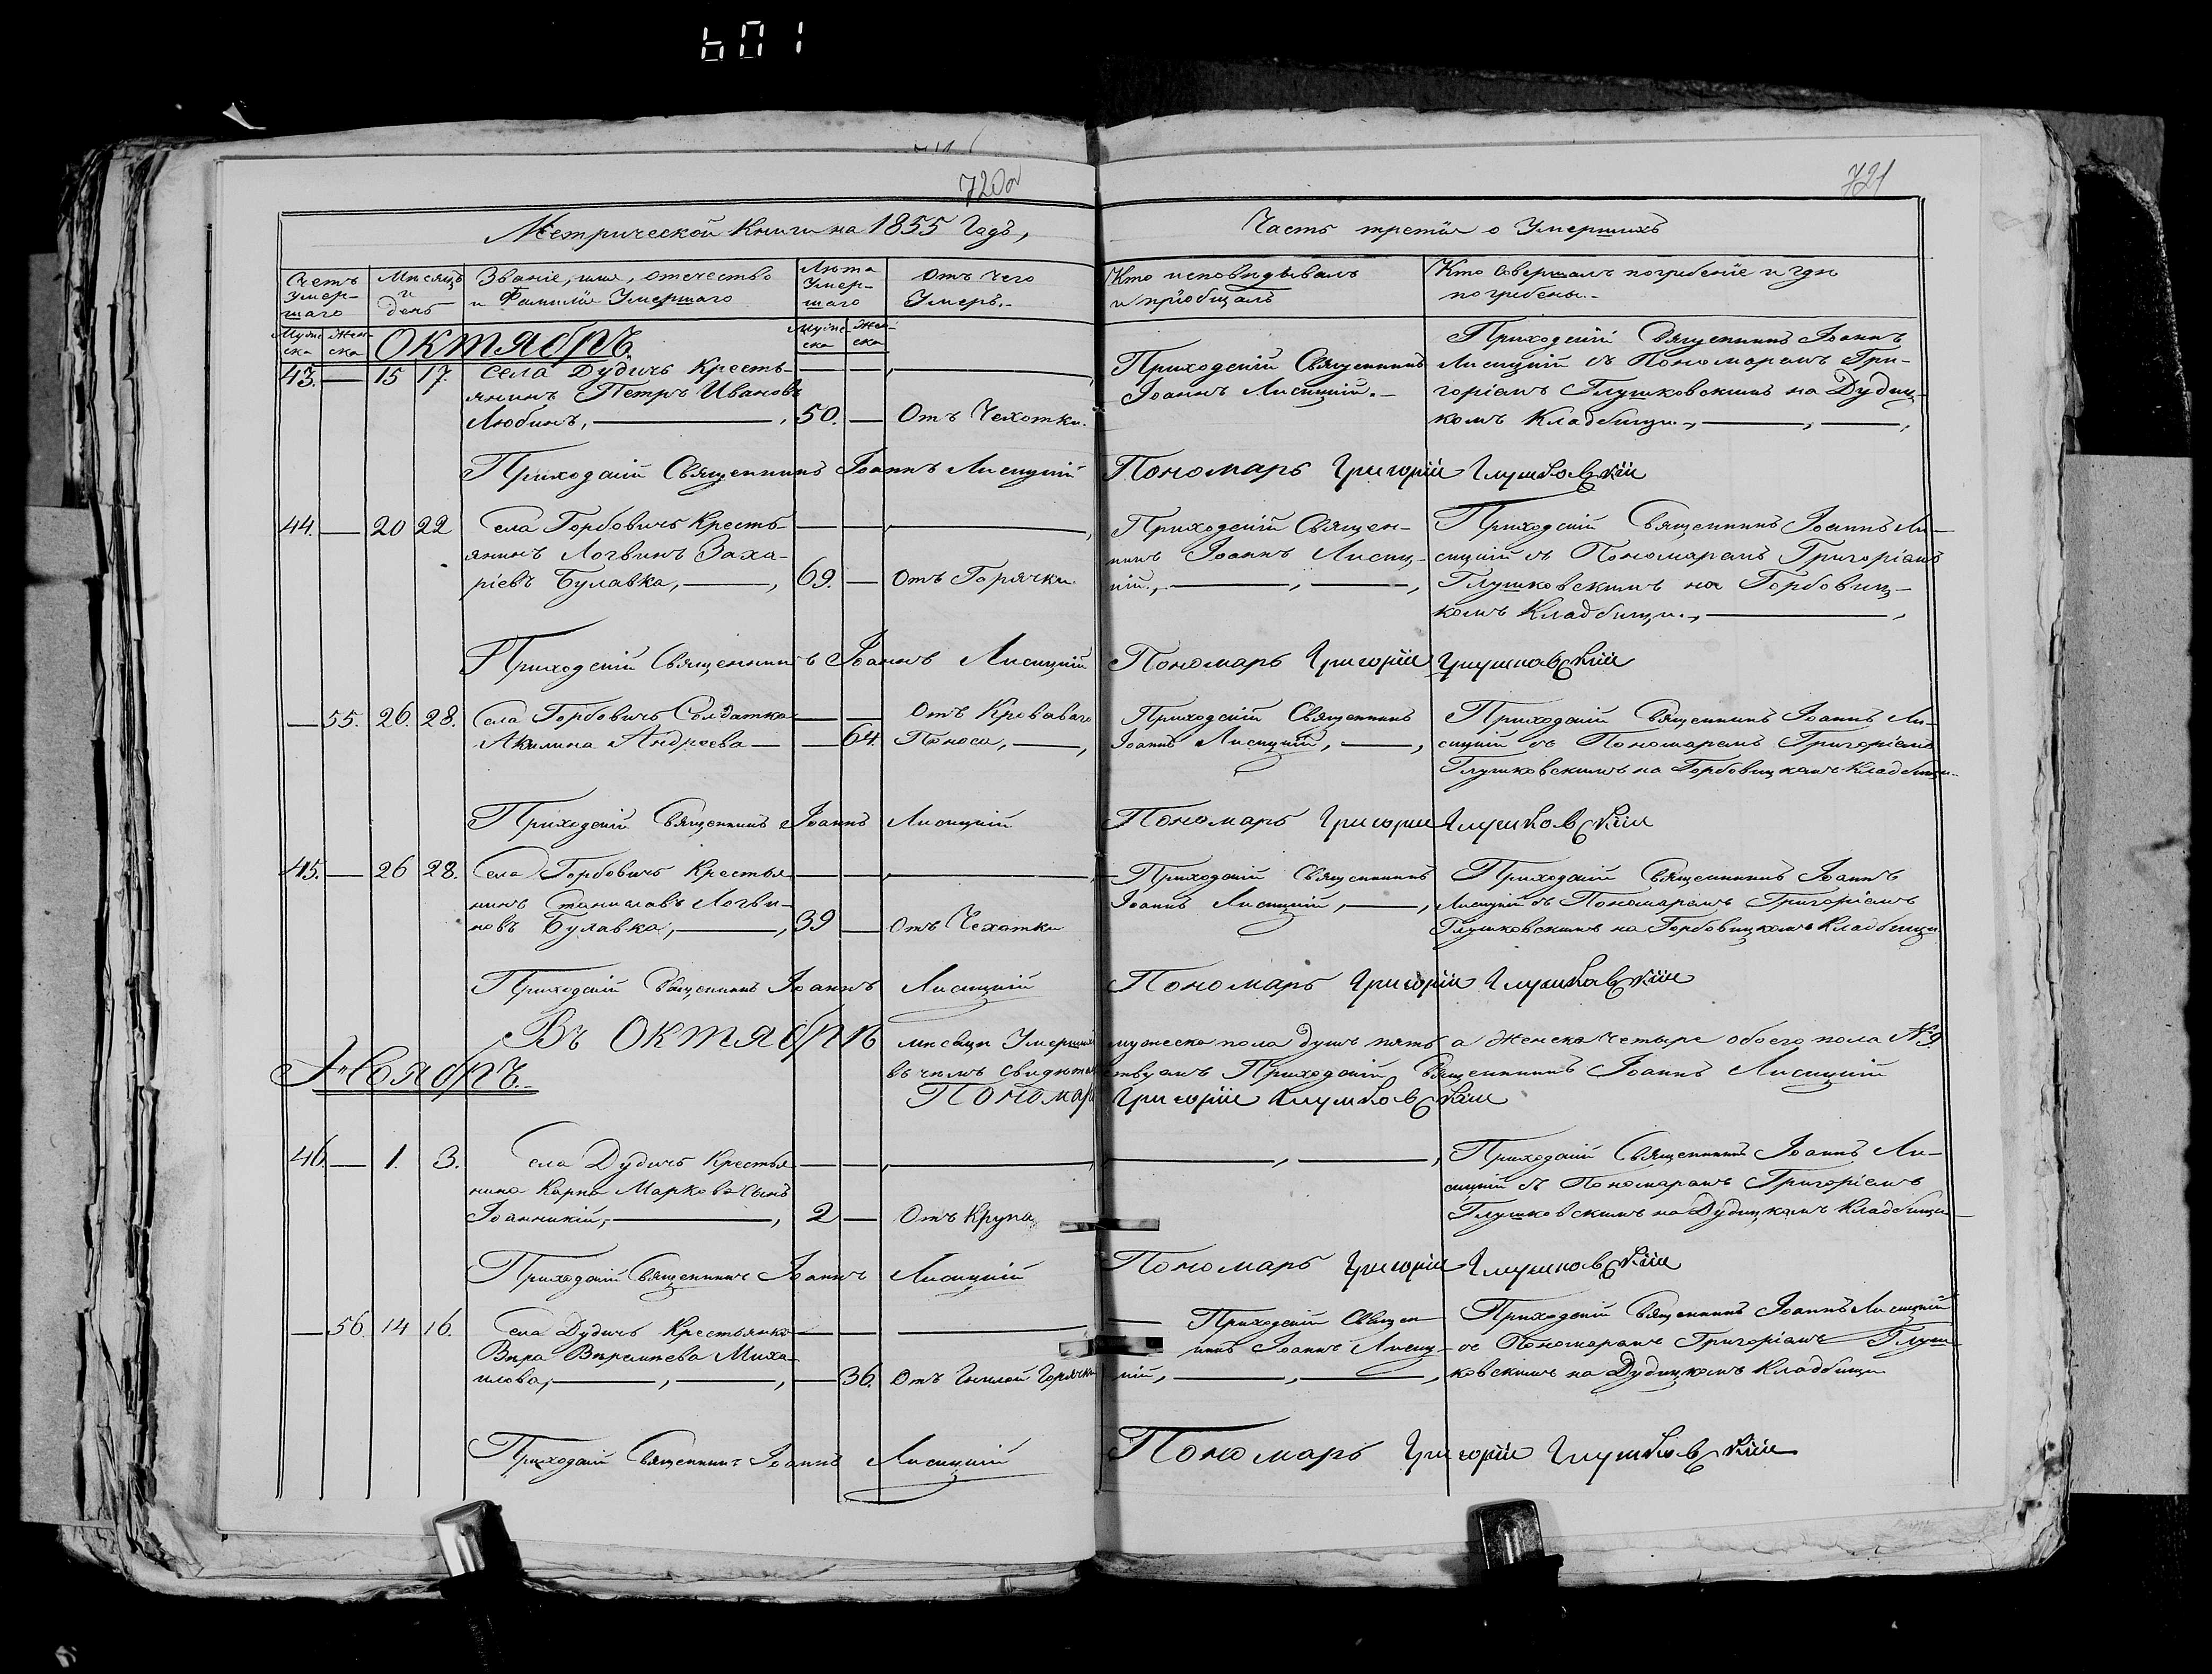 601
720об
721
Метрической Книги на 1855 Годъ,
Часть третія о Умершихъ
Счетъ Умер-шаго
Мѣсяцъ и день
Званіе, имя, отечество и Фамилія Умершаго
Лѣта Умер-шаго
Отъ чего Умеръ.
Кто исповѣдывалъ и пріобщалъ
Кто Совершалъ погребеніе и гдѣ погребены.
Муже-ска
Жен-ска
Муже-ска
Жен-ска
ОКТЯБРЬ
43. — 15 17. Села Дудичь Кресть-
янинъ Петръ Ивановъ
Любинъ, 50. — Отъ Чехотки.
Приходскій Священникъ
Іоаннъ Лисицкій.
Приходскій Священникъ Іоаннъ
Лисицкій съ Пономаремъ Гри-
горіемъ Глушковскимъ на Дудиц-
комъ Кладбищи.
Приходскій Священникъ Іоаннъ Лисицкій Пономарь Григорій Глушковскій
44. — 20 22 Села Горбовичь Кресть-
янинъ Логвинъ Заха-
ріевъ Булавка, 69. — Отъ Горячки
Приходскій Священ-
никъ Іоаннъ Лисиц-
кій,
Приходскій Священникъ Іоаннъ Ли-
сицкій съ Пономаремъ Григоріемъ
Глушковскимъ на Горбовиц-
комъ Кладбищи.
Приходскій Священникъ Іоаннъ Лисицкій Пономарь Григорій Глушковскій
— 55. 26. 28. Села Горбовичь Солдатка
Акилина Андреева — 64. Отъ Кроваваго
Поноса,
Приходскій Священникъ
Іоаннъ Лисицкій,
Приходскій Священникъ Іоаннъ Ли-
сицкій съ Пономаремъ Григоріемъ
Глушковскимъ на Горбовицкомъ Кладбищи.
Приходскій Священникъ Іоаннъ Лисицкій Пономарь Григорій Глушковскій
45. — 26 28. Села Горбовичь Крестья-
нинъ Станиславъ Логви-
новъ Булавка, 39 — Отъ Чехотки
Приходскій Священникъ
Іоаннъ Лисицкій,
Приходскій Священникъ Іоаннъ
Лисицкій съ Пономаремъ Григоріемъ
Глушковскимъ на Горбовицкомъ Кладбищи
Приходскій Священникъ Іоаннъ Лисицкій Пономарь Григорій Глушковскій
Въ ОКТЯБРѢ мѣсяцѣ Умершихъ мужеска пола душъ пять а Женска четыре обоего пола № 9
въ чемъ свидѣтельствуемъ Приходскій Священникъ Іоаннъ Лисицкій
Пономарь Григорій Глушковскій
Ноябрь.
46. — 1. 3. Села Дудичь Крестья-
нина Карпа Маркова Сынъ
Іоанникій, 2 — Отъ Крупа
Приходскій Священникъ Іоаннъ Ли-
сицкій съ Пономаремъ Григоріемъ
Глушковскимъ на Дудицкомъ Кладбищи
Приходскій Священникъ Іоаннъ Лисицкій Пономарь Григорій Глушковскій
— 56. 14 16. Села Дудичь Крестьянка
Вѣра Миха-
илова, — 36. Отъ Гнилой Горячки
Приходскій Священ-
никъ Іоаннъ Лисиц-
кій,
Приходскій Священникъ Іоаннъ Лисицкій
съ Пономаремъ Григоріемъ Глуш-
ковскимъ на Дудицкомъ Кладбищи
Приходскій Священникъ Іоаннъ Лисицкій Пономарь Григорій Глушковскій